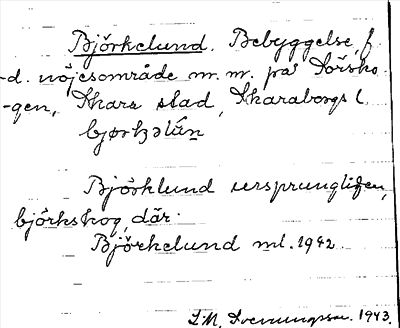 Björkelund. Bebyggelse, f.
d. nöjesområde m. m. på Dörsko-
gen, Skara stad, Skaraborgs l.
bjørkəlún
Björklund ursprungligen,
björkskog, där.
Björkelund ml. 1942.
L. M. Svenungsson. 1943.